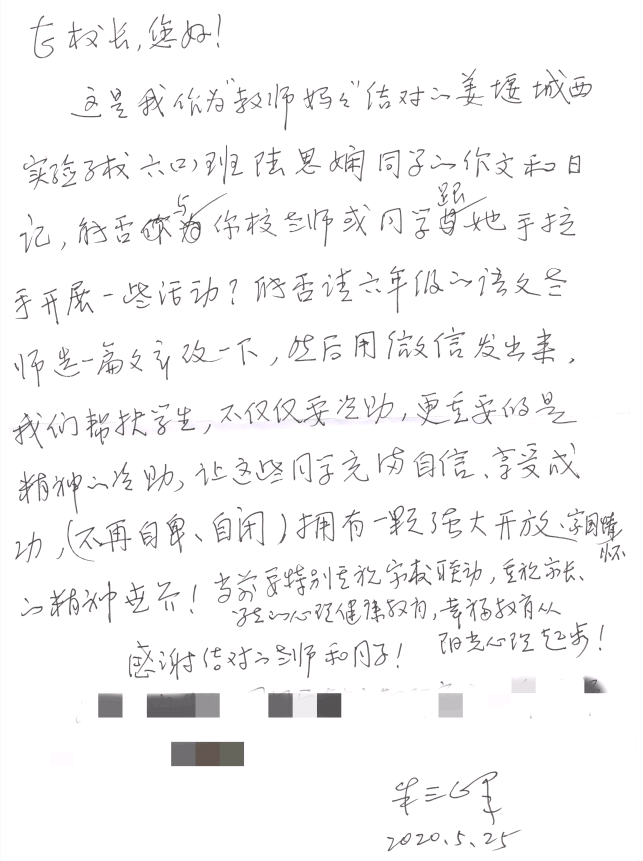 校长,您好!
这是我作为"教师妈妈"结对的姜堰城西
实验学校六(2)班陆思娴同学的作文和日
记,能否与你校老师或同学跟她手拉
手开展一些活动?能否请六年级的语文老
师选一篇文章改一下,然后用微信发出来,
我们帮扶学生,不仅仅要资助,更重要的是
精神的资助,让这些同学充满自信、享受成
功,(不再自卑、自闭)拥有一颗强大开放、家国情怀
的精神世界!当前要特别重视家校联动,重视家长、
学生的心理健康教育,幸福教育从
阳光心理起步!
感谢结对的老师和同学!
2020.5.25